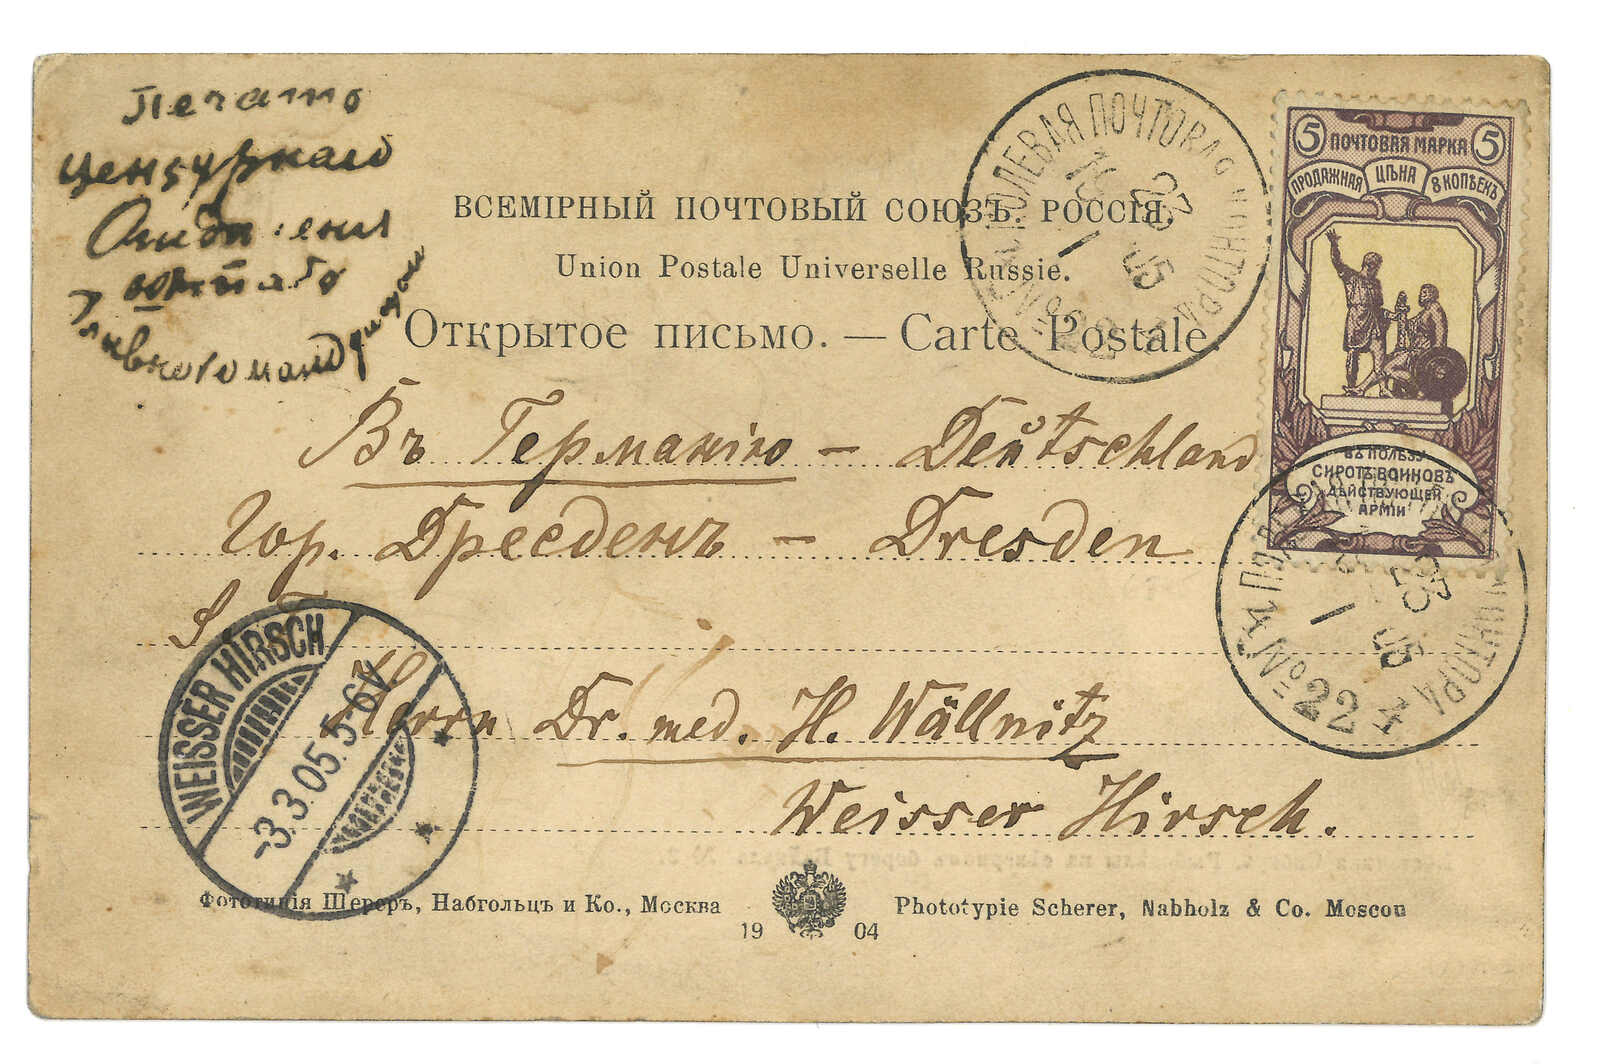 Печать
цензурнаго
Отделения
штаба
Главнокомандующаго
ВСЕМІРНЫЙ ПОЧТОВЫЙ СОЮЗЪ. РОССІЯ.
Union Postale Universelle Russie.
Открытое письмо. — Carte Postale.
ПОЛЕВАЯ ПОЧТОВАЯ КОНТОРА № 22
23 1 05
5 ПОЧТОВАЯ МАРКА 5
ПРОДАЖНАЯ ЦѢНА 8 КОПѢЕКЪ
ВЪ ПОЛЬЗУ
СИРОТЪ ВОИНОВЪ
ДѢЙСТВУЮЩЕЙ
АРМІИ
КОНТОРА № 22
1 05
Въ Германію – Deutschland
Гор. Дрезденъ – Dresden
Herrn Dr. med. H. Wällnitz
Weisser Hirsch.
WEISSER HIRSCH
-3.3.05.5-6V
Фототипія Шереръ, Набгольцъ и Ко., Москва
1904
Phototypie Scherer, Nabholz & Co. Moscou